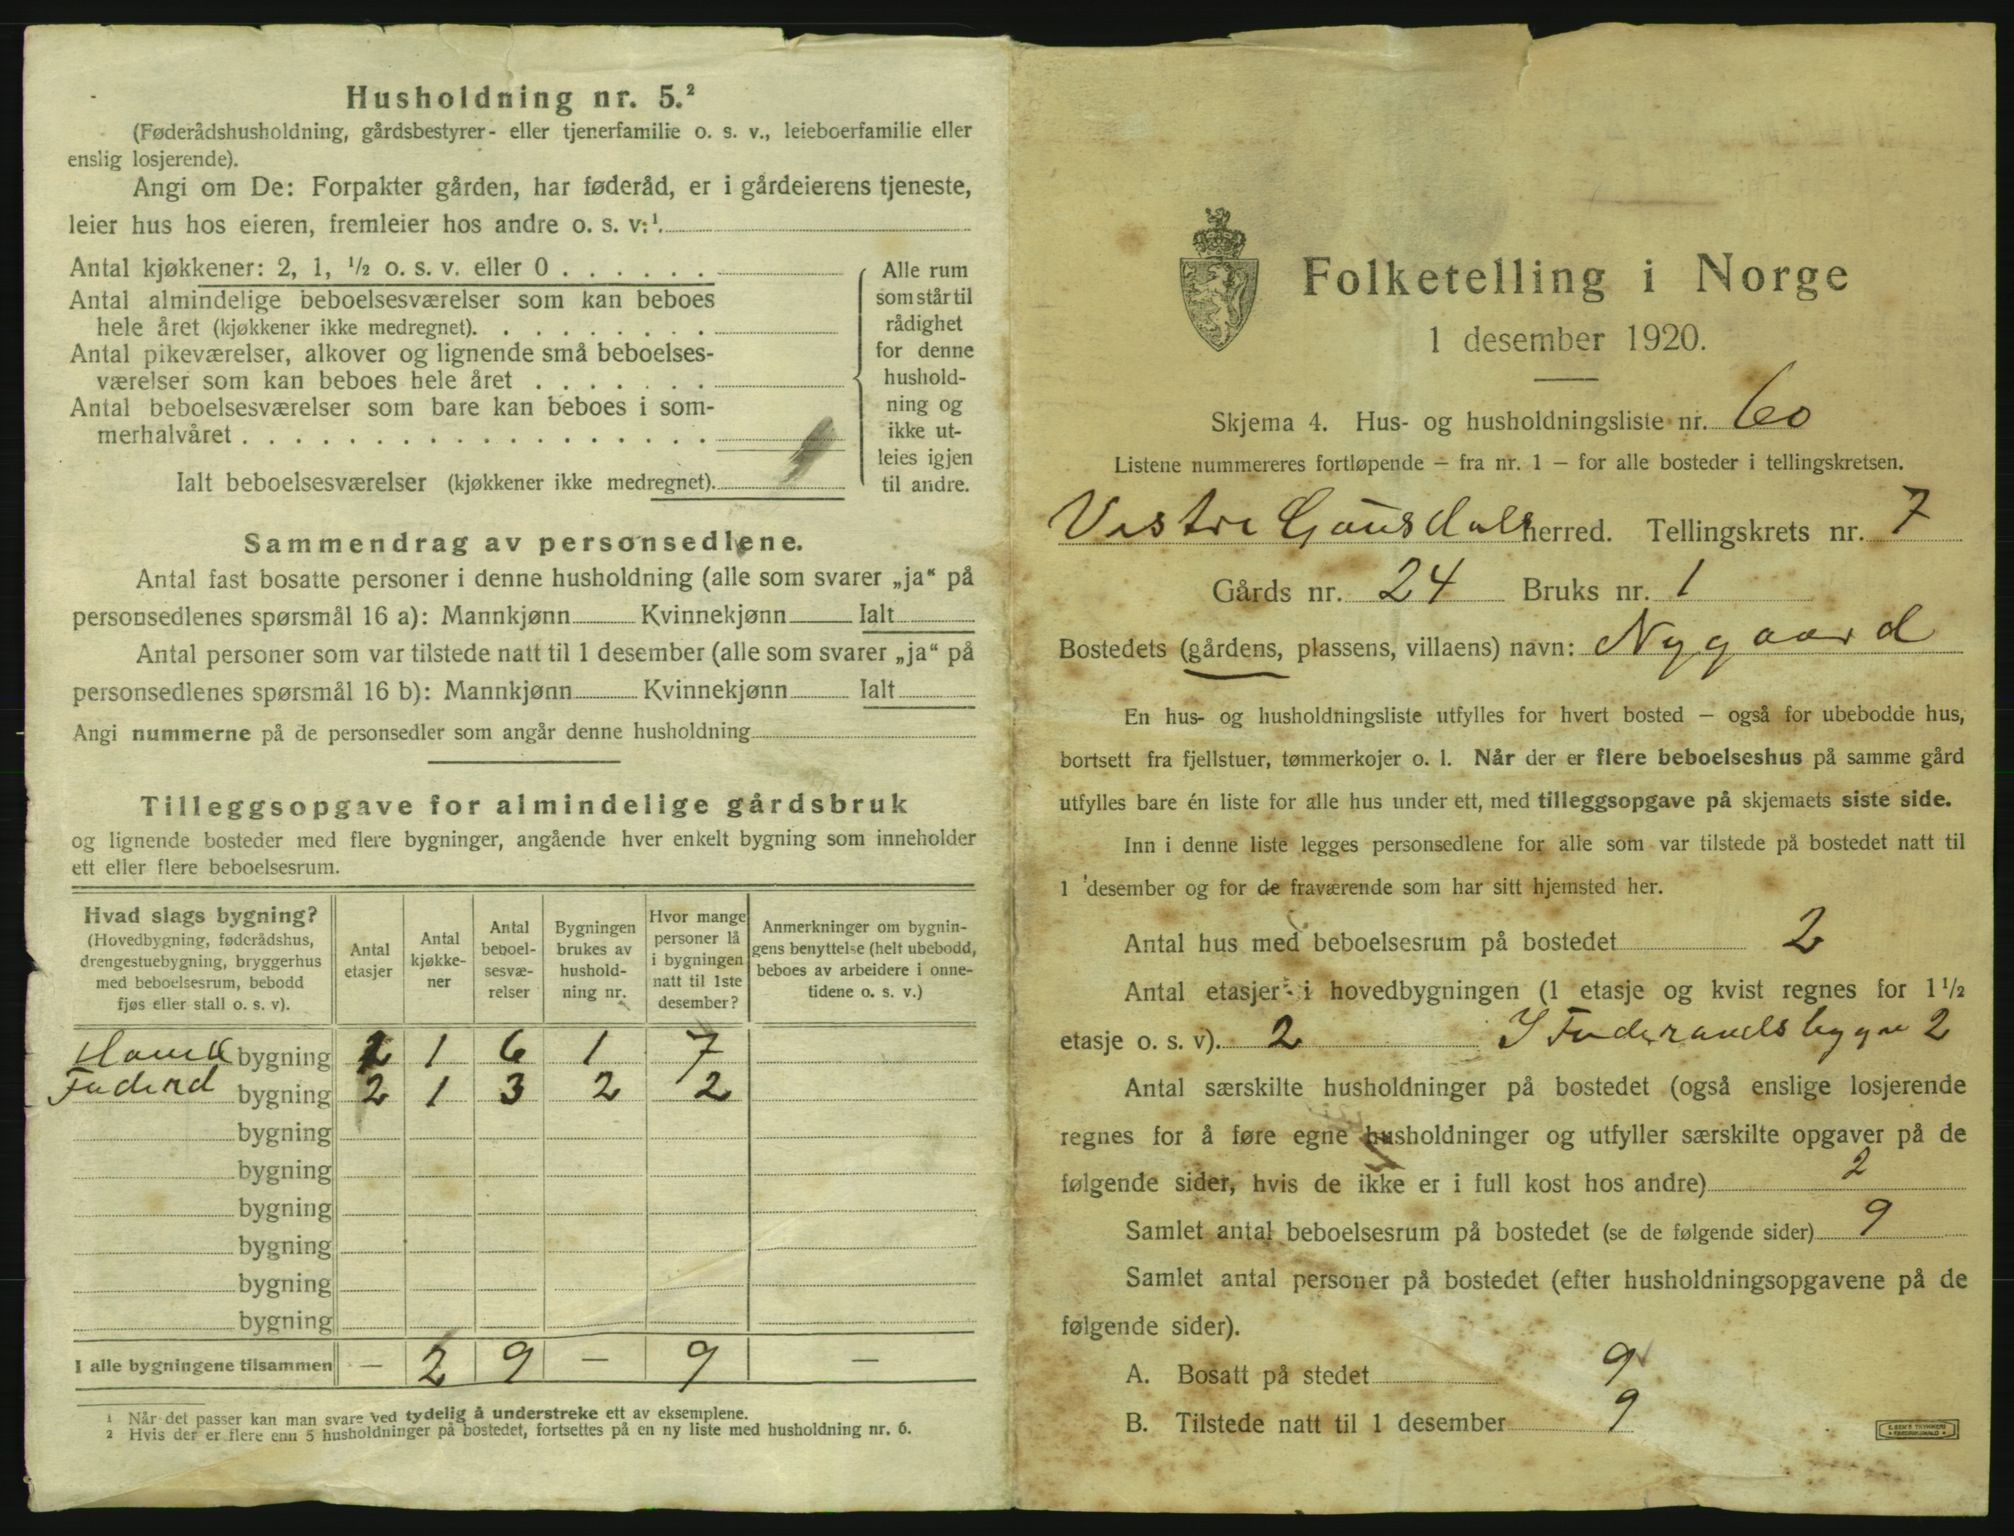 Husholdning nr. 5.²
(Føderådshusholdning, gårdsbestyrer- eller tjenerfamilie o. s. v., leieboerfamilie eller
enslig losjerende).
Angi om De: Forpakter gården, har føderåd, er i gårdeierens tjeneste,
leier hus hos eieren, fremleier hos andre o. s. v:¹.
Antal kjøkkener: 2, 1, ¹/₂ o. s. v. eller 0 . . . . . .
Antal almindelige beboelsesværelser som kan beboes
hele året (kjøkkener ikke medregnet). . . . . . . . .
Antal pikeværelser, alkover og lignende små beboelses-
værelser som kan beboes hele året . . . . . . .
Antal beboelsesværelser som bare kan beboes i som-
merhalvåret . . . . . . . . . . . . . . . . . .
Ialt beboelsesværelser (kjøkkener ikke medregnet).
Alle rum
som står til
rådighet
for denne
hushold-
ning og
ikke ut-
leies igjen
til andre.
Sammendrag av personsedlene.
Antal fast bosatte personer i denne husholdning (alle som svarer „ja“ på
personsedlenes spørsmål 16 a): Mannkjønn Kvinnekjønn Ialt
Antal personer som var tilstede natt til 1 desember (alle som svarer „ja“ på
personsedlenes spørsmål 16 b): Mannkjønn Kvinnekjønn Ialt
Angi nummerne på de personsedler som angår denne husholdning
Tilleggsopgave for almindelige gårdsbruk
og lignende bosteder med flere bygninger, angående hver enkelt bygning som inneholder
ett eller flere beboelsesrum.
Hvad slags bygning?
(Hovedbygning, føderådshus,
drengestuebygning, bryggerhus
med beboelsesrum, bebodd
fjøs eller stall o. s. v).
Antal
etasjer
Antal
kjøkke-
ner
Antal
beboel-
sesvæ-
relser
Bygningen
brukes av
hushold-
ning nr.
Hvor mange
personer lå
i bygningen
natt til 1ste
desember?
Anmerkninger om bygnin-
gens benyttelse (helt ubebodd,
beboes av arbeidere i onne-
tidene o. s. v.)
bygning 2 1 6 1 7
Føderd bygning 2 1 3 2 2
bygning
bygning
bygning
bygning
bygning
bygning
I alle bygningene tilsammen — 2 9 — 9 —
¹ Når det passer kan man svare ved tydelig å understreke ett av eksemplene.
² Hvis der er flere enn 5 husholdninger på bostedet, fortsettes på en ny liste med husholdning nr. 6.
Folketelling i Norge
1 desember 1920.
Skjema 4. Hus- og husholdningsliste nr. 60
Listene nummereres fortløpende — fra nr. 1 — for alle bosteder i tellingskretsen.
Vestre Gausdals herred. Tellingskrets nr. 7
Gårds nr. 24 Bruks nr. 1
Bostedets (gårdens, plassens, villaens) navn: Nygaard
En hus- og husholdningsliste utfylles for hvert bosted — også for ubebodde hus,
bortsett fra fjellstuer, tømmerkojer o. l. Når der er flere beboelseshus på samme gård
utfylles bare én liste for alle hus under ett, med tilleggsopgave på skjemaets siste side.
Inn i denne liste legges personsedlene for alle som var tilstede på bostedet natt til
1 desember og for de fraværende som har sitt hjemsted her.
Antal hus med beboelsesrum på bostedet 2
Antal etasjer i hovedbygningen (1 etasje og kvist regnes for 1¹/₂
etasje o. s. v). 2 I Føderaadsbygn 2
Antal særskilte husholdninger på bostedet (også enslige losjerende
regnes for å føre egne husholdninger og utfyller særskilte opgaver på de
følgende sider, hvis de ikke er i full kost hos andre) 2
Samlet antal beboelsesrum på bostedet (se de følgende sider) 9
Samlet antal personer på bostedet (efter husholdningsopgavene på de
følgende sider).
A. Bosatt på stedet 9
B. Tilstede natt til 1 desember 9